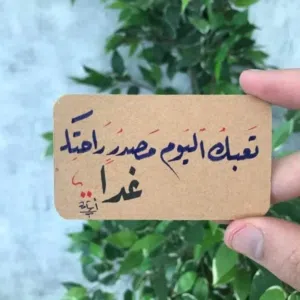 تَعبكَ اَليوم مَصدرُ رَاحتِك
غداً